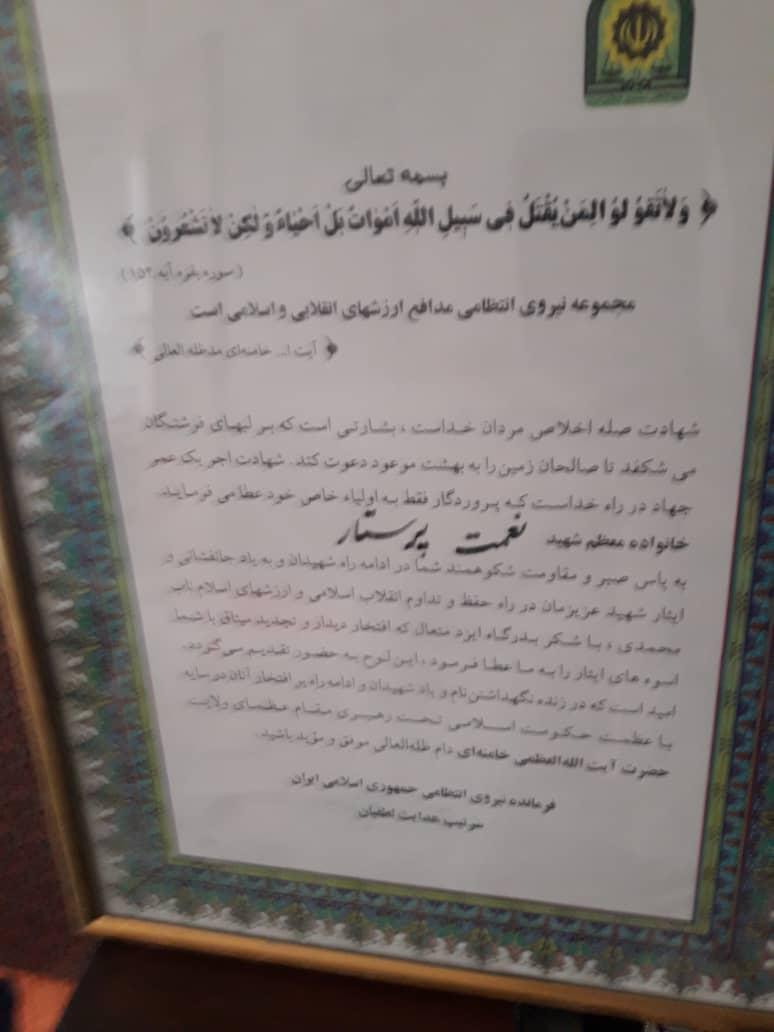 بسمه تعالی
﴿ وَلاٰتَقوُ لوُ الِمَنْ یُقْتَلُ فِی سَبِیلِ اللّهِ اَمْوٰاتٌ بَلْ اَحْیٰاءٌ وَ لٰکِنْ لاٰ تَشْعُروُنَ ﴾
(سوره بقره، آیه ۱۵۴)
مجموعه نیروی انتظامی مدافع ارزشهای انقلابی و اسلامی است
﴿ آیت ا... خامنه‌ای مدظله العالی ﴾
شهادت صله اخلاص مردان خداست ، بشارتی است که بر لبهای فرشتگان
می شکفد تا صالحان زمین را به بهشت موعود دعوت کند. شهادت اجر یک عمر
جهاد در راه خداست که پروردگار فقط به اولیاء خاص خود عطا می فرماید.
خانواده معظم شهید نعمت پرستار
به پاس صبر و مقاومت شکوهمند شما در ادامه راه شهیدان و به یاد جانفشانی و
ایثار شهید عزیزمان در راه حفظ و تداوم انقلاب اسلامی و ارزشهای اسلام ناب
محمدی ، با شکر بدرگاه ایزد متعال که افتخار دیدار و تجدید میثاق با شما
اسوه های ایثار را به ما عطا فرمود ، این لوح به حضور تقدیم می گردد.
امید است که در زنده نگهداشتن نام و یاد شهیدان و ادامه راه پر افتخار آنان در سایه
با عظمت حکومت اسلامی تحت رهبری مقام عظمای ولایت
حضرت آیت الله العظمی خامنه‌ای دام ظله‌العالی موفق و مؤید باشید.
فرمانده نیروی انتظامی جمهوری اسلامی ایران
سرتیپ هدایت لطفیان